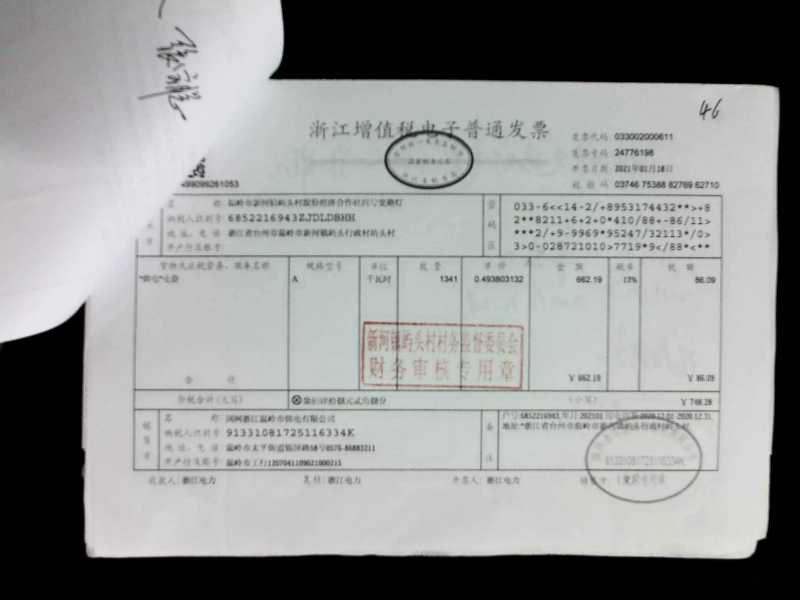 46
浙江增值税电子普通发票
发票代码 033002000611
发票号码 24776198
开票日期 2021年01月18日
校验码 03746 75388 82769 62710
499099261053
名称 温岭市新河镇屿头村股份经济合作社四号变路灯
纳税人识别号 6852216943ZJDLDBHH
地址、电话 浙江省台州市温岭市新河镇屿头行政村屿头村
开户行及账号
密码区
033-6<<14-2/+8953174432**>+8
2**8211+6+2+0*410/88+-86/11>
***2/+9-9969*95247/32113*/0>
3>0-028721010>7719*9</88*<**
货物或应税劳务、服务名称 规格型号 单位 数量 单价 金额 税率 税额
*供电*电费 A 千瓦时 1341 0.493803132 662.19 13% 86.09
新河镇屿头村村务监督委员会
财务审核专用章
合计 ¥ 662.19 ¥ 86.09
价税合计(大写) ⊗柒佰肆拾捌元贰角捌分 (小写) ¥ 748.28
销售方
名称 国网浙江温岭市供电有限公司
纳税人识别号 91331081725116334K
地址、电话 温岭市太平街道锦屏路58号0576-86883211
开户行及账号 温岭市工行1207041109021000215
备注
户号:6852216943,年月:202101
地址:*浙江省台州市温岭市新河镇屿头行政村屿头村
91331081725116334K
收款人:浙江电力 复核:浙江电力 开票人:浙江电力